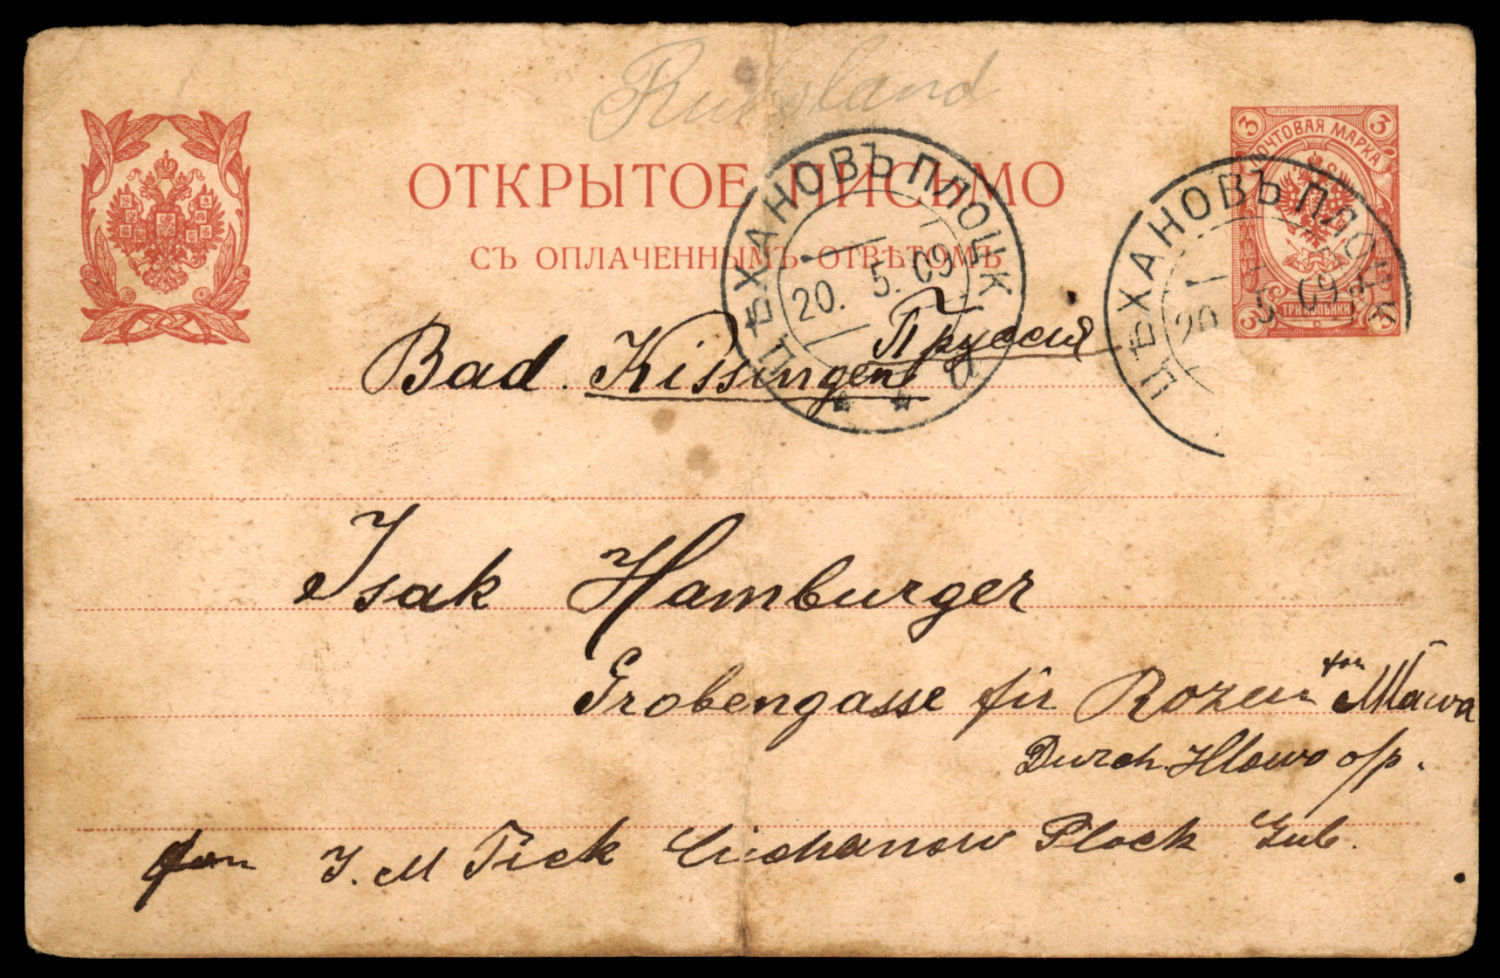 Rußland
ОТКРЫТОЕ ПИСЬМО
СЪ ОПЛАЧЕННЫМЪ ОТВѢТОМЪ
3 3
ПОЧТОВАЯ МАРКА
ТРИ КОПѢЙКИ
3 3
ЦѢХАНОВЪ ПЛОЦК
20. 5. 09
ЦѢХАНОВЪ ПЛОЦК
20. 5. 09
Пруссия
Bad Kissingen
Isak Hamburger
Grobengasse für Rozen von Mlawa
Durch Illowo o/p.
fon J. M Tick Ciechanow Plock Gub.